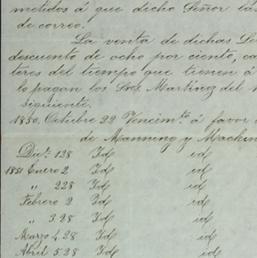 metidos á que dicho Señor
de correo.
La venta de dichas
descuento de ocho por ciento,
del tiempo que tienen á
lo pagan los Sres Martinez del
siguiente.
1850. Octubre 29 Vencim.to á favor
de Manning y Mackin
Dic.e 1 28 Id id
1851 Enero 2 Id id
" 2 28 Id id
Febrero 2 Id id
" 3 28 Id id
Marzo 4 28 Id id
Abril 5 28 Id id